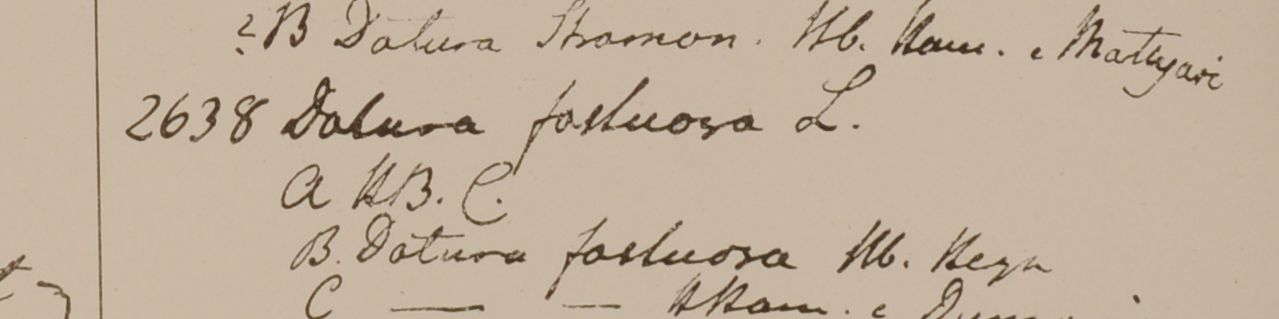 ? B Datura Stramon. Hb. Ham. e Mattyari
2638 Datura fastuosa L.
A HB. C.
B. Datura fastuosa Hb. Heyn
C — — HHam. e